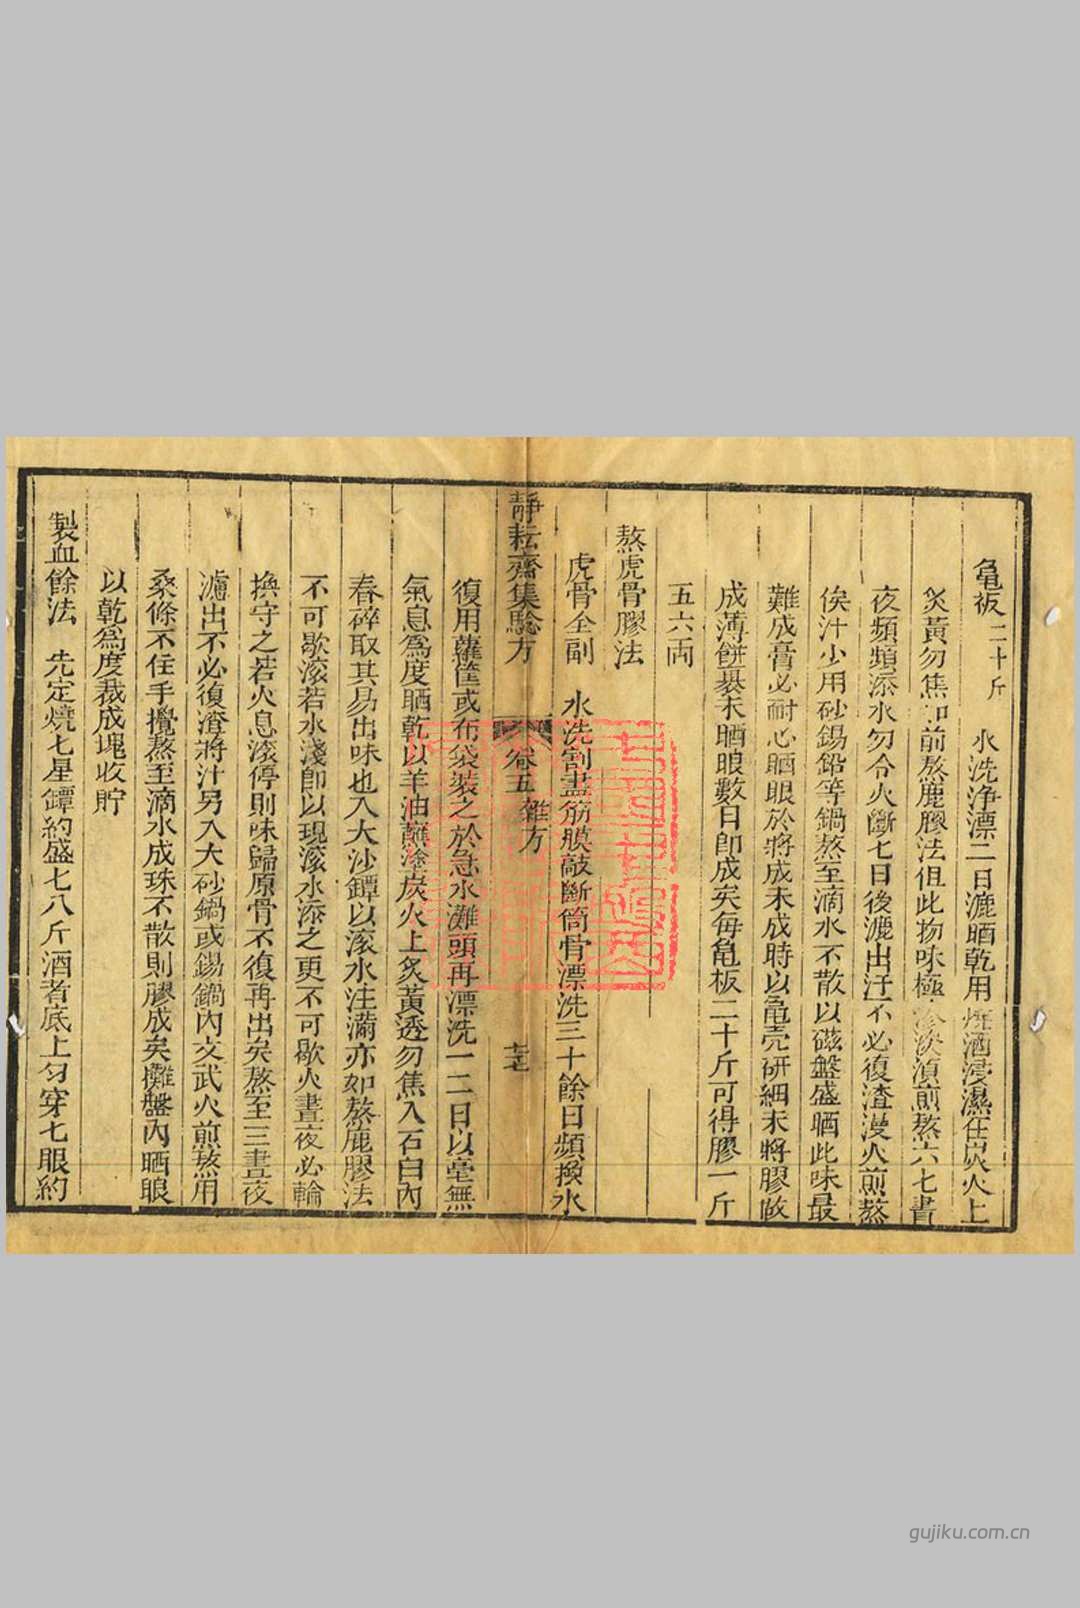 龜板二十斤　水洗浄漂二日漉晒乾用燒酒浸濕在炭火上
炙黃勿焦如前熬鹿膠法但此物味極冷淡須煎熬六七晝
夜頻頻添水勿令火斷七日後漉出汁不必復渣漫火煎熬
俟汁少用砂錫鉛等鍋熬至滴水不散以磁盤盛晒此味最
難成膏必耐心晒晾於將成未成時以龜壳研細末將膠做
成薄餅捵末晒晾數日卽成矣每龜板二十斤可得膠一斤
五六両
熬虎骨膠法
虎骨全副　水洗割盡筋膜敲斷筒骨漂洗三十餘日頻換水
靜耘齋集騐方　卷五　雜方
復用籮筐或布袋裝之於急水灘頭再漂洗一二日以毫無
氣息爲度晒乾以羊油蘸塗炭火上炙黃透勿焦入石臼內
舂碎取其易出味也入大沙罈以滚水注滿亦如熬鹿膠法
不可歇滚若水淺卽以現滚水添之更不可歇火晝夜必輪
換守之若火息滚停則味歸原骨不復再出矣熬至三晝夜
濾出不必復渣將汁另入大砂鍋或錫鍋內文武火煎熬用
桑條不住手攪熬至滴水成珠不散則膠成矣攤盤內晒晾
以乾爲度裁成塊收貯
製血餘法　先定燒七星罈約盛七八斤酒者底上勻穿七眼約
gujiku.com.cn